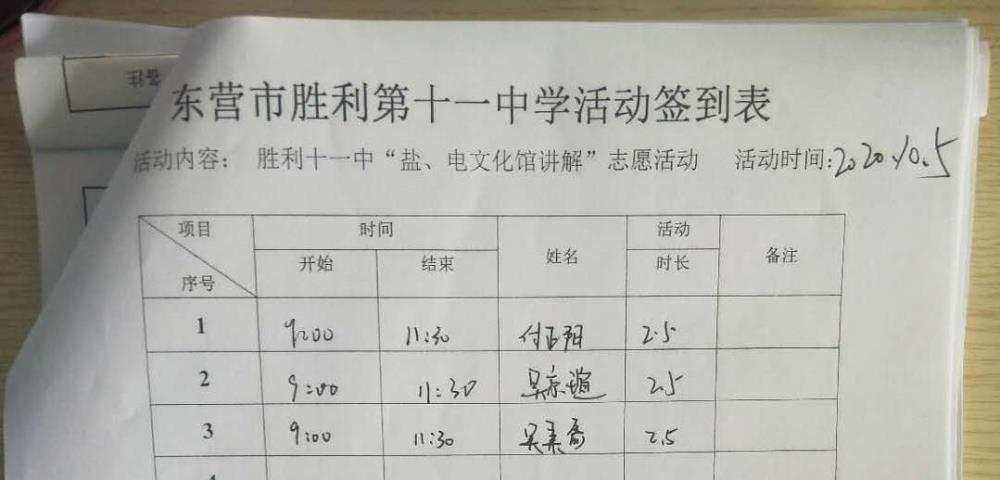 备注
东营市胜利第十一中学活动签到表
活动内容： 胜利十一中“盐、电文化馆讲解”志愿活动 活动时间：2020.10.5
项目 时间 姓名 活动 备注
序号 开始 结束 时长
1 9:00 11:30 付正阳 2.5
2 9:00 11:30 2.5
3 9:00 11:30 2.5